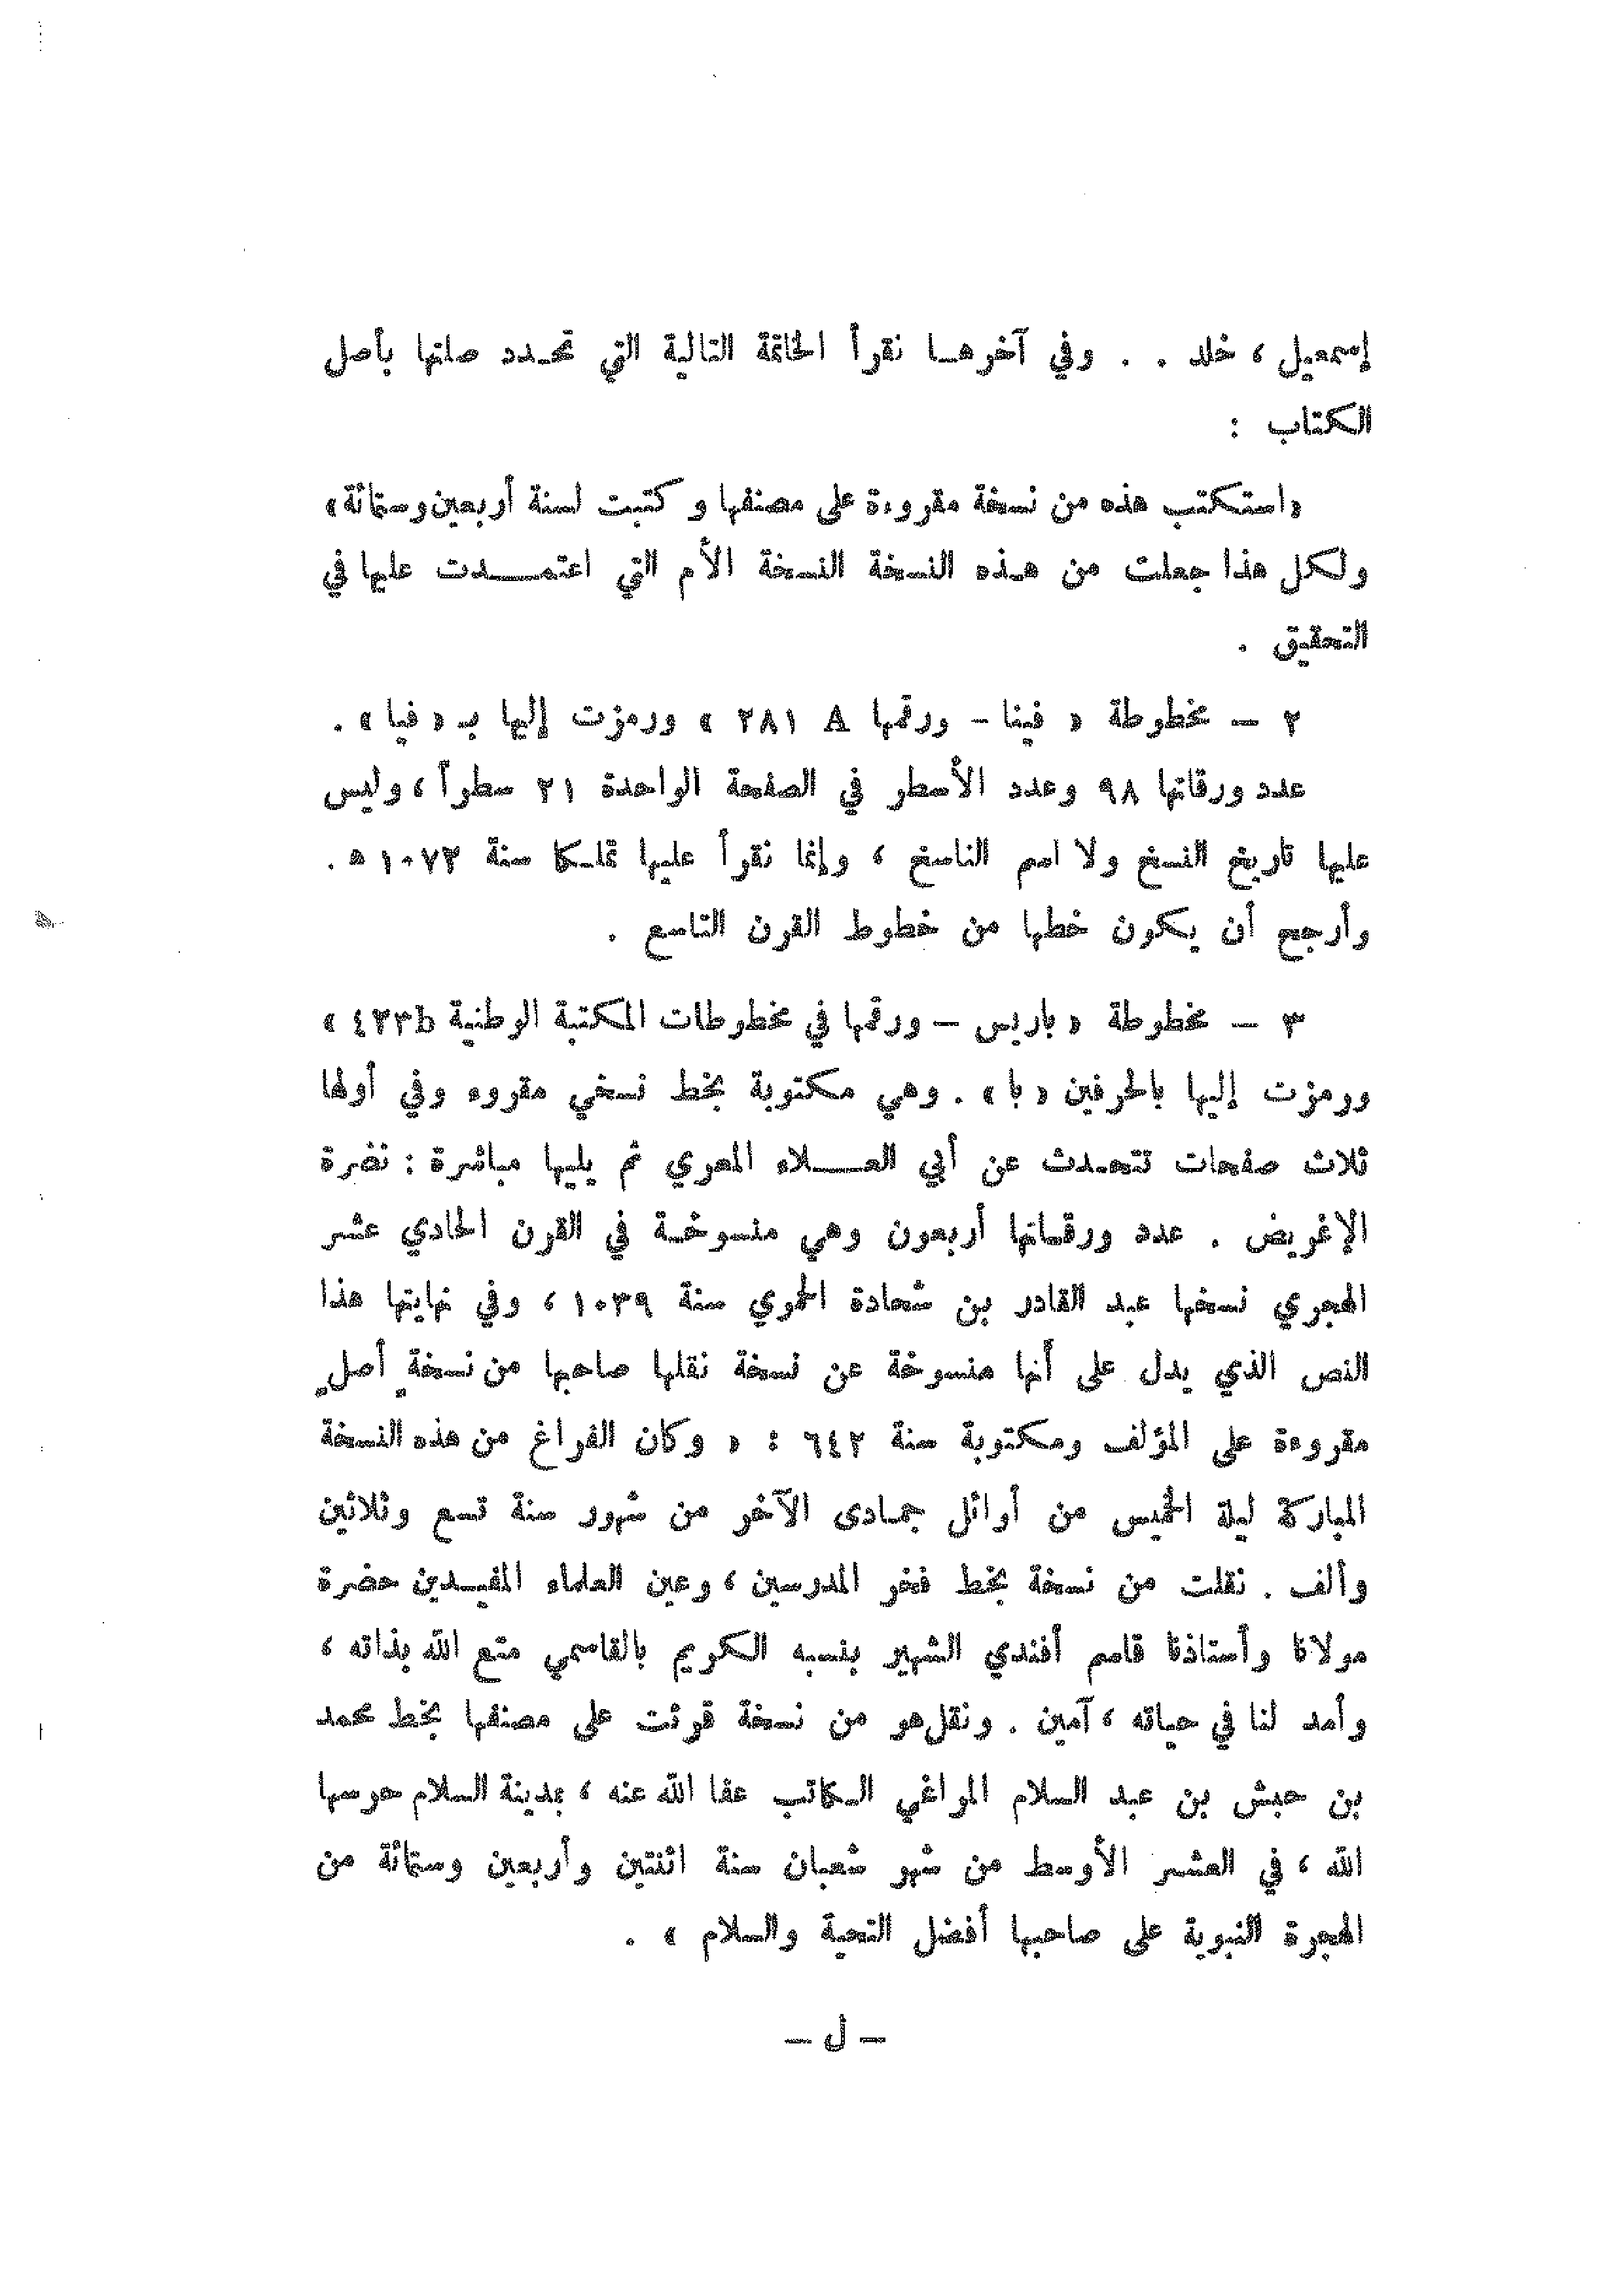 إسمعيل ، خلد . . وفي آخرهـا نقرأ الخاتمة التالية التي تحـدد صلتها بأصل
الكتاب :
« استكتب هذه من نسخة مقروءة على مصنفها و كتبت لسنة أربعين وستمائة »
ولكل هذا جعلت من هـذه النسخة النسخة الأم التي اعتمـــدت عليها في
التحقيق .
٢ — مخطوطة « فينا - ورقمها A ٢٨١ » ورمزت إليها بـ « فيا » .
عدد ورقاتها ٩٨ وعدد الأسطر في الصفحة الواحدة ٢١ سطراً ، وليس
عليها تاريخ النسخ ولا اسم الناسخ ، وإنما نقرأ عليها تملـكا سنة ١٠٧٣ هـ .
وأرجح أن يكون خطها من خطوط القرن التاسع .
٣ — مخطوطة « باريس — ورقمها في مخطوطات المكتبة الوطنية ٤٢٣b »
ورمزت إليها بالحرفين « با » . وهي مكتوبة بخط نسخي مقروء وفي أولها
ثلاث صفحات تتحـدث عن أبي العـــلاء المعري ثم يليها مباشرة : نضرة
الإغريض . عدد ورقـاتها أربعون وهي منسوخـة في القرن الحادي عشر
الهجري نسخها عبد القادر بن شحادة الحموي سنة ١٠٣٩ ، وفي نهايتها هذا
النص الذي يدل على أنها منسوخة عن نسخة نقلها صاحبها من نسخةٍ أصلٍ
مقروءة على المؤلف ومكتوبة سنة ٦٤٢ : « وكان الفراغ من هذه النسخة
المباركة ليلة الخميس من أوائل جمـادى الآخر من شهور سنة تسع وثلاثين
وألف . نقلت من نسخة بخط فخر المدرسين ، وعين العلماء المفيـدين حضرة
مولانا وأستاذنا قاسم أفندي الشهير بنسبه الكريم بالقاسمي متع الله بذاته ،
وأمد لنا في حياته ، آمين . ونقل هو من نسخة قرئت على مصنفها بخط محمد
بن حبش بن عبد السلام المراغي الـكاتب عفا الله عنه ، بمدينة السلام حرسها
الله ، في العشـر الأوسط من شهر شعبان سنة اثنتين وأربعين وستمائة من
الهجرة النبوية على صاحبها أفضل التحية والسلام » .
— ل —